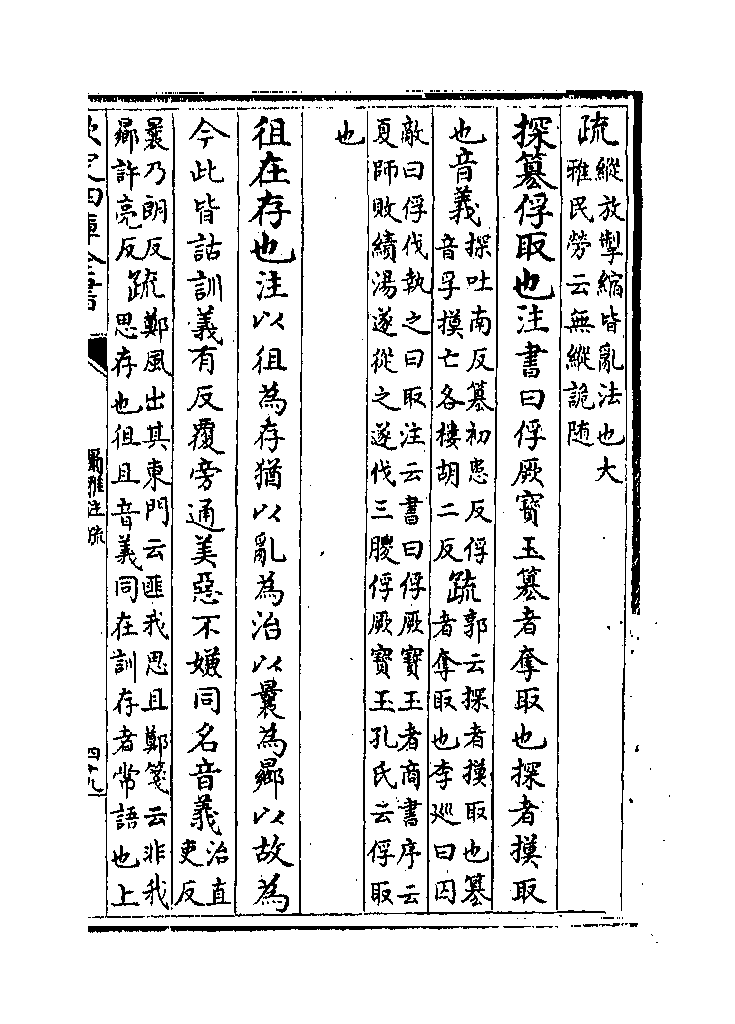 疏縱放掣縮皆亂法也大
雅民勞云無縱詭随
探簒俘取也注書曰俘厥寳玉簒者奪取也探者摸取
也音義探吐南反簒初患反俘
音孚摸亡各楼胡二反疏郭云探者摸取也簒
者奪取也李廵曰囚
敵曰俘伐執之曰取注云書曰俘厥寳玉者商書序云
夏師敗績湯遂從之遂伐三朡俘厥寳玉孔氏云俘取
也
徂在存也注以徂為存猶以亂為治以曩為曏以故為
今此皆詁訓義有反覆旁通美惡不嫌同名音義治直
吏反
曩乃朗反
曏許亮反疏鄭風出其東門云匪我思且鄭箋云非我
思存也徂且音義同在訓存者常語也上
欽定四庫全書
爾雅注疏
四十九